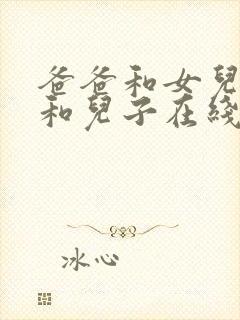 爸爸和女兒
和兒子在綫
冰心